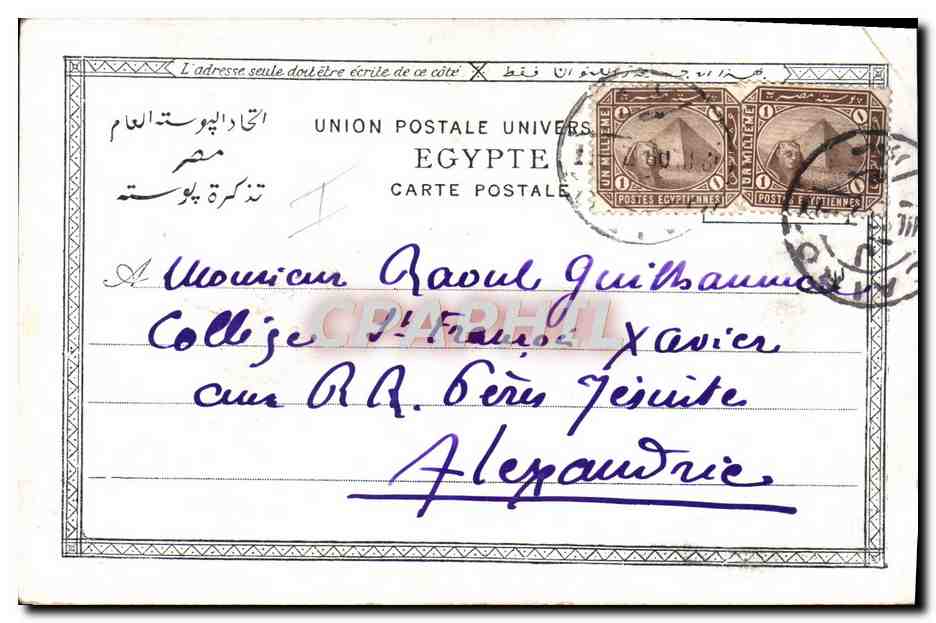 L'adresse seule doit être écrite de ce côté
اتحاد البوسته العام
مصر
تذكرة بوسته
UNION POSTALE UNIVERS
EGYPTE
CARTE POSTALE
UN MILLIEME
POSTES EGYPTIENNES
1
UN MILLIEME
POSTES EGYPTIENNES
1
A Monsieur Raoul Guilhaumin
Collège St François Xavier
aux RR. Pères Jésuites
Alexandrie
CPAPHIL